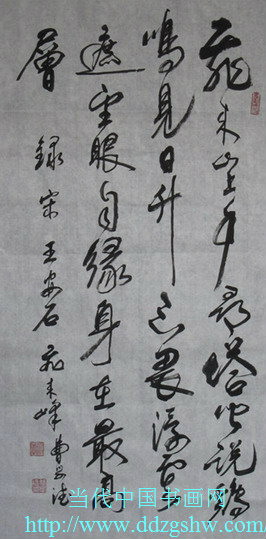 飛来山上千尋塔聞說鷄
鳴見日升不畏浮雲
遮望眼自緣身在最高
層
録宋王安石飛来峰
当代中国书画网
http://www.ddzgshw.com/